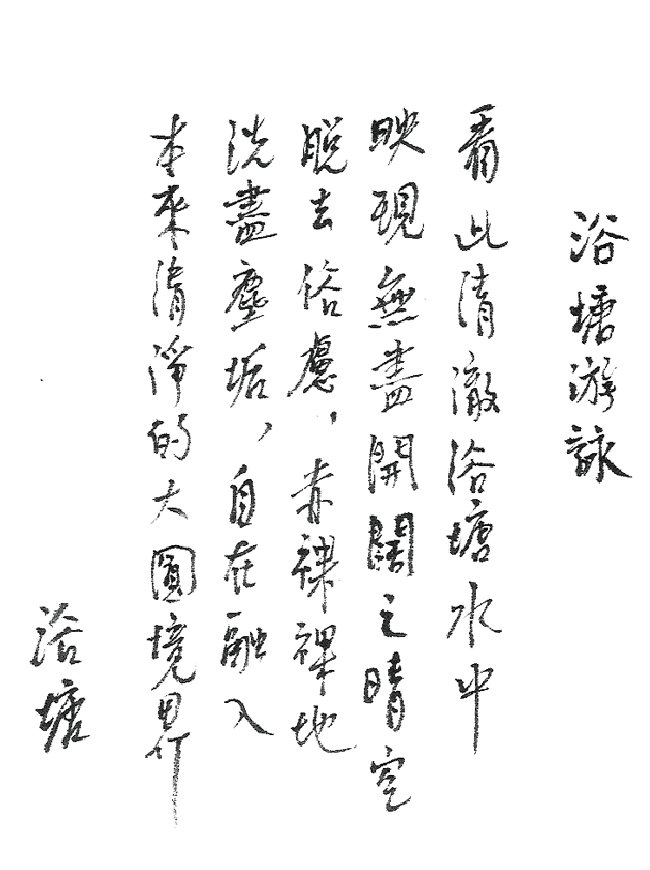 浴塘游詠
看此清澈浴塘水中
映現無盡開闊之晴空
脫去俗慮，赤裸裸地
洗盡塵垢，自在融入
本來清淨的大圓境界
浴塘